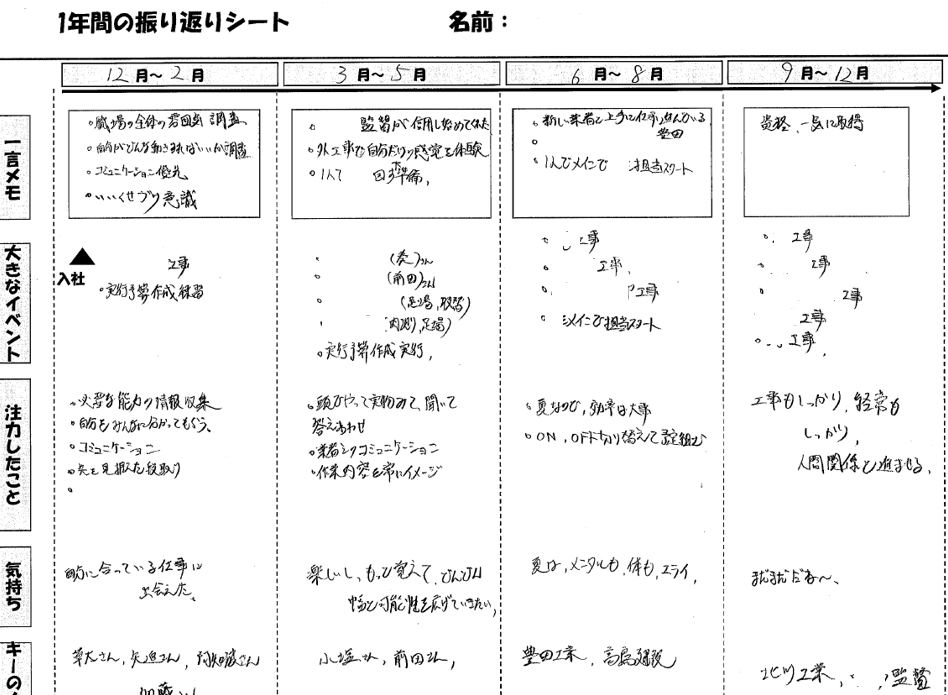 1年間の振り返りシート 名前：
12月～2月 3月～5月 6月～8月 9月～12月
一言メモ
・職場の全体の雰囲気 調査
・自分がどんな動きすればいいか調査
・コミュニケーション優先
・いいくせづけ意識
監督が信用し始めてくれた
・外工事で自分だけの感覚を体験
・1人で 準備、
・新しい業者と上手に仕事
豊田
・1人でメインで 担当スタート
資格、一点に取得
大きなイベント
入社
工事
・実行予算作成練習
さん
(前田)さん
(足場、
足場)
・実行予算作成実行、
工事
工事、
工事
メインで担当スタート
工事
工事
工事
工事
工事、
注力したこと
・必要な能力の情報収集
・自分をみんなに分かってもらう、
・コミュニケーション
・先を見据えた段取り
・頭でやって実物みて、聞いて
答えあわせ
・業者とのコミュニケーション
・作業内容を常にイメージ
・夏なので、効率は大事
・ON、OFF切り替えて
工事もしっかり、経常も
しっかり、
人間関係も進ませる、
気持ち
自分に合っている仕事に
出会えた、
楽しいし、もっと覚えて、どんどん
可能性を広げていきたい、
夏は、メンタルも、体も、エライ、
まだまだだね～、
キーの
さん、矢追さん、阿知波さん
加藤
小塩さん、前田さん、
豊田工業、高島建設
北川工業、 監督